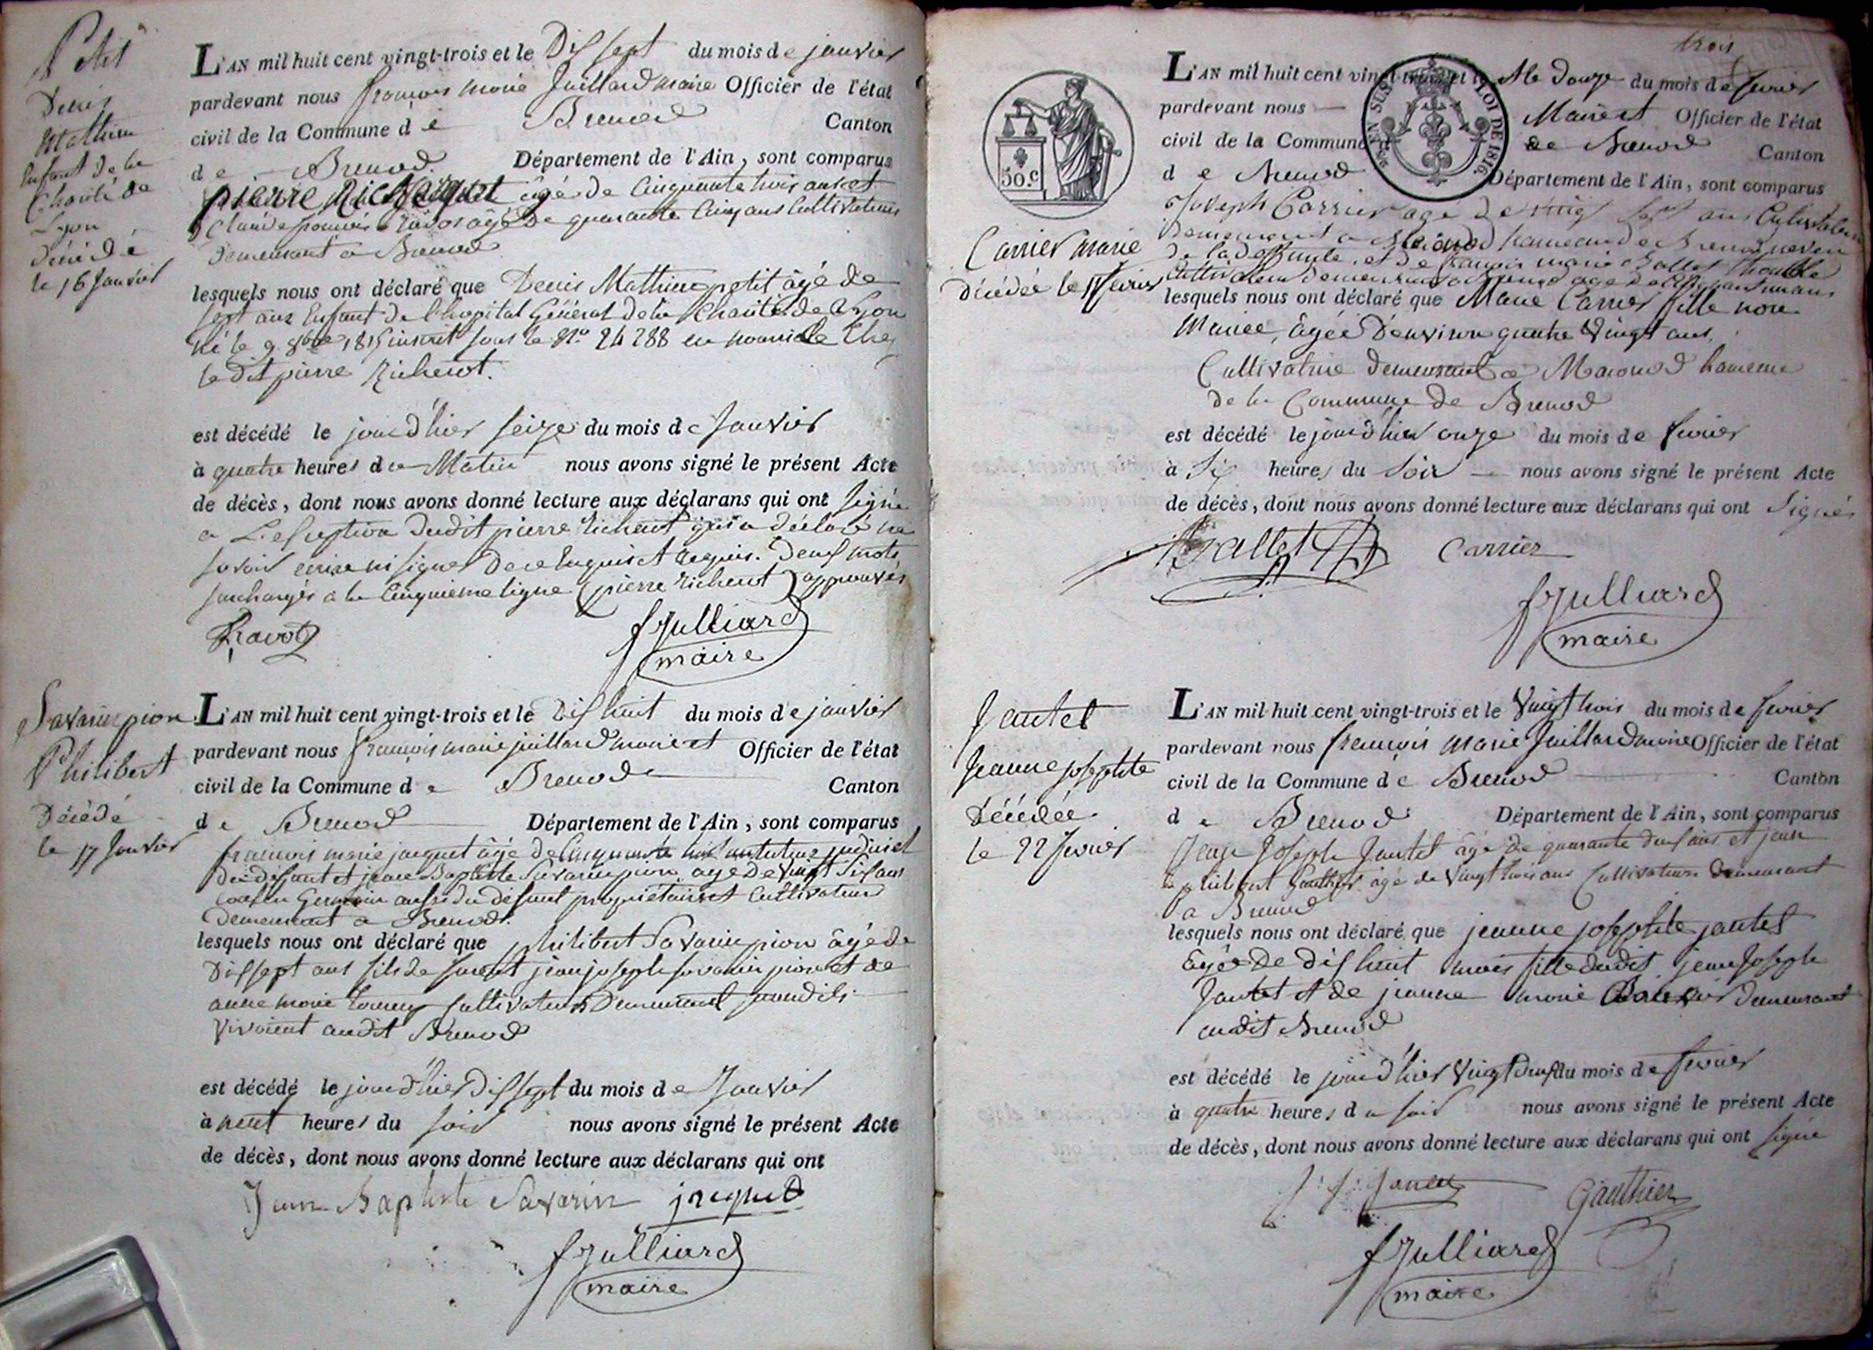 Petit
Denis
Mathieu
Enfant de la
Charité de
Lyon
décédé
le 16 Janvier
L'AN mil huit cent vingt-trois et le Dix sept du mois de janvier
pardevant nous françois marie Juillard maire Officier de l'état
civil de la Commune de Brenod Canton
de Brenod Département de l'Ain, sont comparus
pierre Richerot âgé de Cinquante trois ans et
Claude françois ravot âgé de quarante Cinq ans Cultivateurs
demeurant a Brenod
lesquels nous ont déclaré que Denis Mathieu petit âgé de
sept ans Enfant de l'hopital Général de la Charité de Lyon
né le 9 8bre 1815 inscrit sous le No. 24288 en nourrice Chez
le dit pierre Richerot.
est décédé le jour d'hier seize du mois de Janvier
à quatre heures du Matin nous avons signé le présent Acte
de décès, dont nous avons donné lecture aux déclarans qui ont signé
a L'exception dudit pierre Richerot qui a déclaré ne
savoir écrire ni signer de ce Enquis et Requis. Deux mots
surchargés a la Cinquieme ligne (pierre richerot) approuvés
Ravot
fJulliard
maire
Savarin pion
Philibert
Décédé
le 17 Janvier
L'AN mil huit cent vingt-trois et le Dix huit du mois de janvier
pardevant nous françois marie juillard maire et Officier de l'état
civil de la Commune de Brenod Canton
de Brenod Département de l'Ain, sont comparus
françois marie jacquet âgé de Cinquante huit ans tuteur
du défunt et jean Baptiste Savarin pion âgé de vingt Six ans
cousin Germain aussi du défunt propriétaires et Cultivateurs
demeurant a Brenod.
lesquels nous ont déclaré que philibert Savarin pion âgé de
Dix sept ans fils de jean joseph savarin pion et de
anne marie Cultivateurs Demeurant quand ils
vivoient audit Brenod
est décédé le jour d'hier Dix sept du mois de Janvier
à neuf heures du soir nous avons signé le présent Acte
de décès, dont nous avons donné lecture aux déclarans qui ont
Jean Baptiste Savarin jacquet
fJulliard
maire
trois
50.c
EN SUS LOI DE 1816
Carrier marie
Décédée le 11 fevrier
L'AN mil huit cent vingt-trois et le douze du mois de fevrier
pardevant nous Maire et Officier de l'état
civil de la Commune de Brenod Canton
de Brenod Département de l'Ain, sont comparus
Joseph Carrier age de vingt sept ans Cultivateur
demeurant a Macconod hameau de Brenod neveu
de la deffunte, et de françois marie Ballet
lesquels nous ont déclaré que Marie Carrier fille non
Mariée, âgée d'environ quatre vingt ans,
Cultivatrice demeurant a Maconod hameau
de la Commune de Brenod
est décédé le jour d'hier onze du mois de fevrier
à Six heures du Soir nous avons signé le présent Acte
de décès, dont nous avons donné lecture aux déclarans qui ont Signés
Ballet Carrier
fJulliard
maire
Jantet
Jeanne josephte
Décédée
le 22 fevrier
L'AN mil huit cent vingt-trois et le Vingt trois du mois de fevrier
pardevant nous francois Marie Juillard maire Officier de l'état
civil de la Commune de Brenod Canton
de Brenod Département de l'Ain, sont comparus
Jean Joseph Jantet âgé de quarante deux ans et jean
philibert Gauthier âgé de vingt trois ans Cultivateurs demeurant
a Brenod
lesquels nous ont déclaré que jeanne josephte jantet
âgée de dix huit mois fille dudit jean Joseph
Jantet et de jeanne marie demeurant
audit Brenod
est décédé le jour d'hier Vingt deux du mois de fevrier
à quatre heures du soir nous avons signé le présent Acte
de décès, dont nous avons donné lecture aux déclarans qui ont signé
j. j. Jantet Gauthier
fJulliard
maire